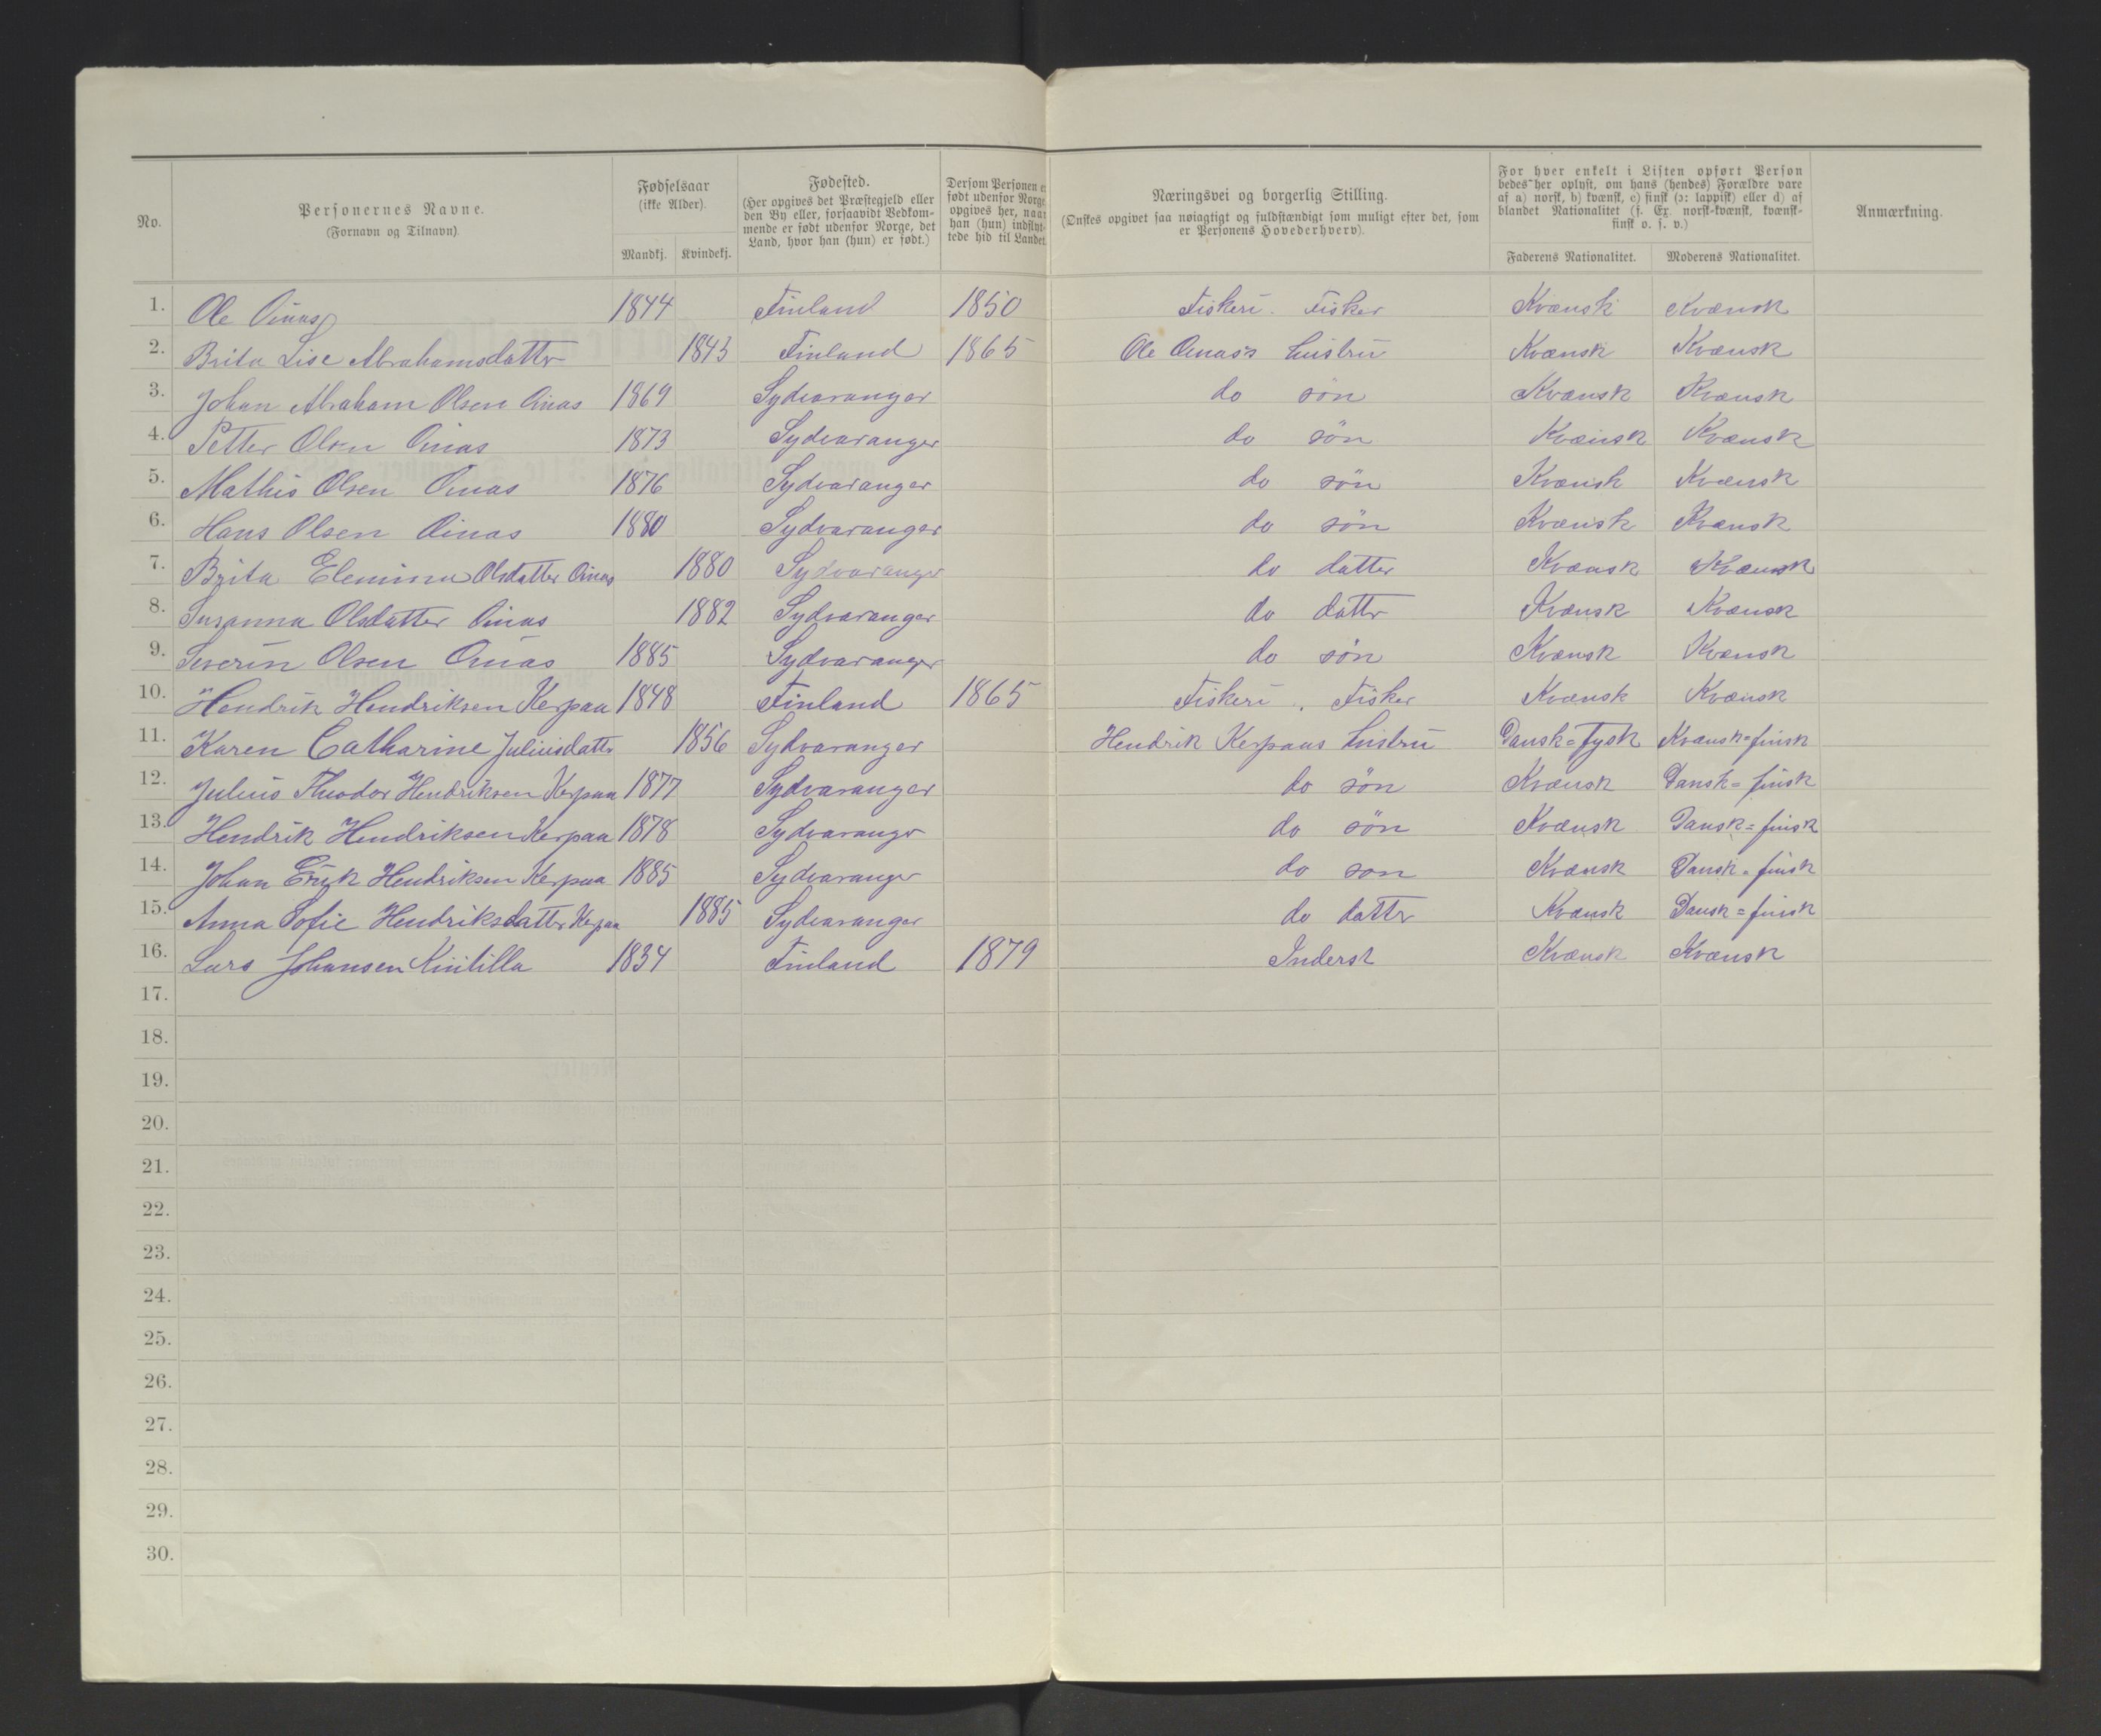 No.
Personernes Navne.
(Fornavn og Tilnavn).
Fødselsaar
(ikke Alder).
Mandkj. Kvindekj.
Fødested.
(Her opgives det Præstegjeld eller
den By eller, forsaavidt Vedkom-
mende er født udenfor Norge, det
Land, hvor han (hun) er født.)
Dersom Personen er
født udenfor Norge,
opgives her, naar
han (hun) indflyt-
tede hid til Landet.
Næringsvei og borgerlig Stilling.
(Ønskes opgivet saa nøiagtigt og fuldstændigt som muligt efter det, som
er Personens Hovederhverv).
For hver enkelt i Listen opført Person
bedes her oplyst, om hans (hendes) Forældre vare
af a) norsk, b) kvænsk, c) finsk (ɔ: lappisk) eller d) af
blandet Nationalitet (f. Ex. norsk-kvænsk, kvænsk-
finsk o. s. v.)
Faderens Nationalitet. Moderens Nationalitet.
Anmærkning.
1. Ole Oinas 1844 Finland 1850 Fiskeri. Fisker Kvænsk Kvænsk
2. Brita Lise Abrahamsdattr 1843 Finland 1865 Ole Oinas's hustru Kvænsk Kvænsk
3. Johan Abraham Olsen Oinas 1869 Sydvaranger do søn Kvænsk Kvænsk
4. Petter Olsen Oinas 1873 Sydvaranger do søn Kvænsk Kvænsk
5. Mathis Olsen Oinas 1876 Sydvaranger do søn Kvænsk Kvænsk
6. Hans Olsen Oinas 1880 Sydvaranger do søn Kvænsk Kvænsk
7. Brita Elemina Olsdatter Oinas 1880 Sydvaranger do datter Kvænsk Kvænsk
8. Susanna Olsdatter Oinas 1882 Sydvaranger do dattr Kvænsk Kvænsk
9. Severin Olsen Oinas 1885 Sydvaranger do søn Kvænsk Kvænsk
10. Hendrik Hendriksen Kerpaa 1848 Finland 1865 Fiskeri. Fisker Kvænsk Kvænsk
11. Karen Catharine Juliusdattr 1856 Sydvaranger Hendrik Kerpaas hustru Dansk=Tysk Kvænsk=finsk
12. Julius Theodor Hendriksen Kerpaa 1877 Sydvaranger do søn Kvænsk Dansk=finsk
13. Hendrik Hendriksen Kerpaa 1878 Sydvarangr do søn Kvænsk Dansk=finsk
14. Johan Erik Hendriksen Kerpaa 1885 Sydvarangr do søn Kvænsk Dansk=finsk
15. Anna Sofie Hendriksdatter Kerpaa 1885 Sydvaranger do dattr Kvænsk Dansk=finsk
16. Lars Johansen 1834 Finland 1879 Inderst Kvænsk Kvænsk
17.
18.
19.
20.
21.
22.
23.
24.
25.
26.
27.
28.
29.
30.